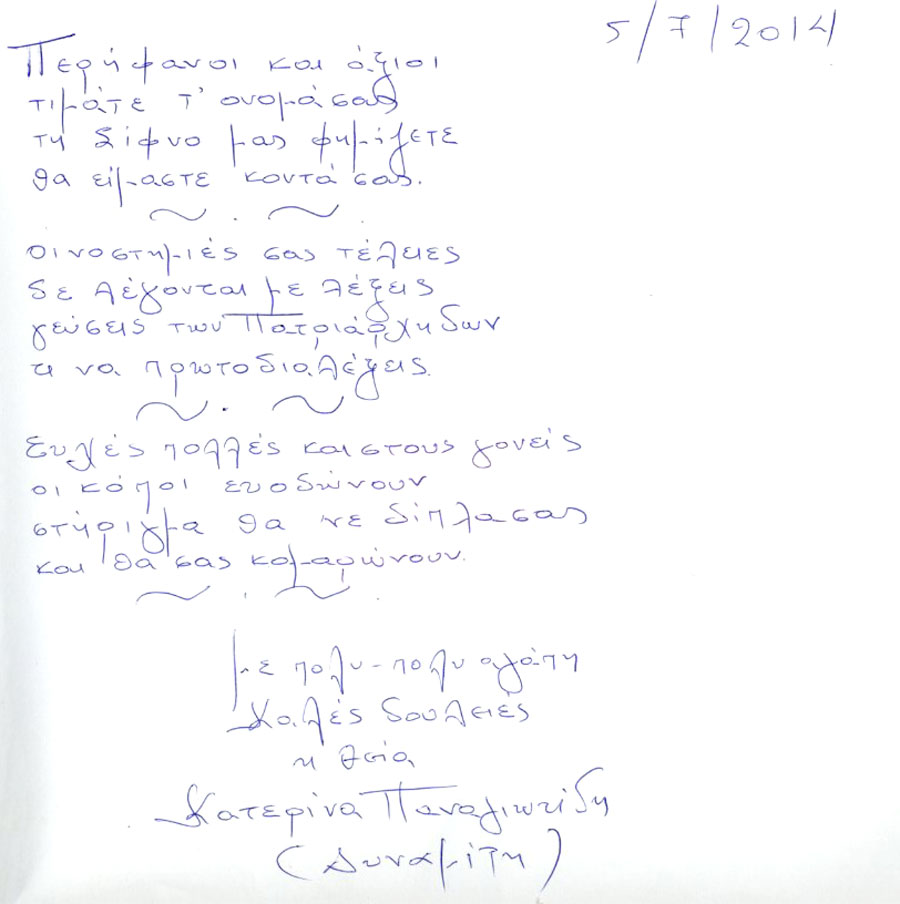 5/7/2014
Περήφανοι και άξιοι
τιμάτε τ' ονομά σας
τη Σίφνο μας φημίζετε
θα είμαστε κοντά σας.
~ . ~
οι νοστημιές σας τέλειες
δε λέγονται με λέξεις
γεύσεις των Πατριάρχηδων
τι να πρωτοδιαλέξεις.
~ . ~
Ευχές πολλές και στους γονείς
οι κόποι ευοδώνουν
στήριγμα θα 'νε δίπλα σας
και θα σας καμαρώνουν.
~ . ~ .
με πολυ-πολυ αγάπη
Καλές δουλειές
η θεία
Κατερίνα Παναγιωτίδη
(Δυναμίτη)